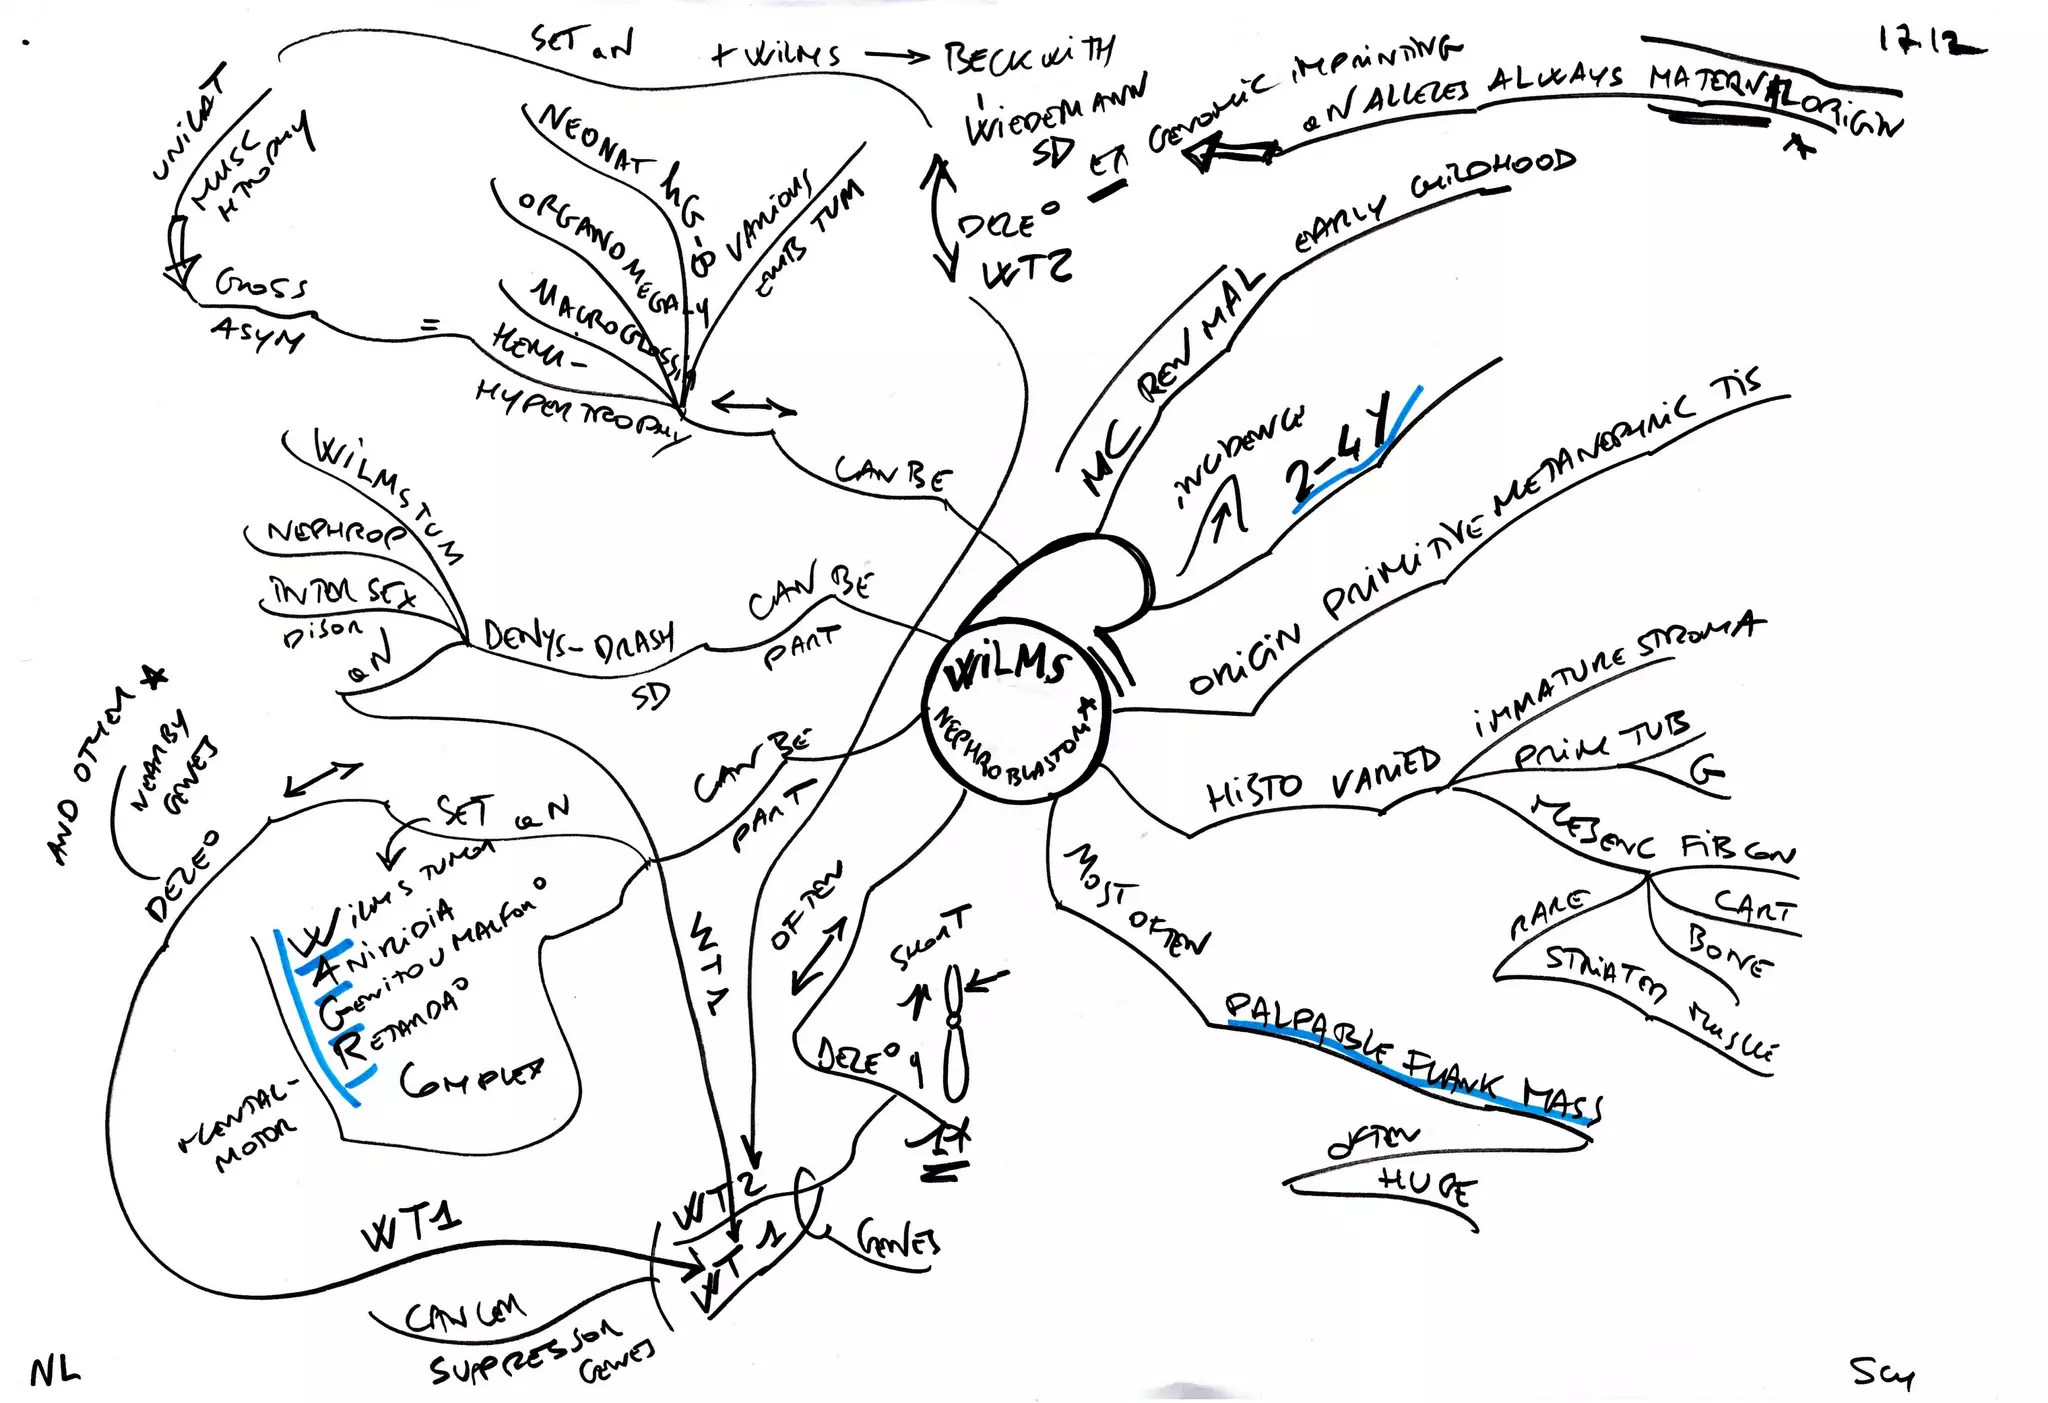 17.12
SET aN + WILMS → BECKWITH
WIEDEMANN
SD
ET GENOMIC IMPRINTING
aN ALLELES ALWAYS MATERNAL ORIGIN
DELE°
WT2
UNILAT
MUSC
HTROPHY
GROSS
ASYM
=
HEMI-
HYPERTROPHY
MACROGLOSSI
ORGANOMEGA-Y
NEONAT hG-
VARIOUS
EMB TUM
CAN BE
MC REN MAL
EARLY CHILDHOOD
INCIDENCE
2-4Y
ORIGIN PRIMITIVE METANEPHRIC TIS
WILMS
NEPHROBLASTOMA
HISTO VARIED
IMMATURE STROMA
PRIM TUB
G
MESENC FIB CON
CART
BONE
RARE
STRIATED MUSCLE
MOST OFTEN
PALPABLE FLANK MASS
OFTEN
HUGE
WILMS TUM
NEPHROP
INTERSEX
DISOR
aN
DENYS-DRASH
SD
CAN BE
PART
CAN BE
PART
AND OTHER
NEARBY
GENES
DELE°
SET aN
WILMS TUMOR
ANIRIDIA
GENITOU MALFOR°
RETARDA°
COMPLEX
MENTAL-
MOTOR
WT1
WT1
OFTEN
DELE°
SHORT
11
WT2
WT1
GENES
CANCER
SUPPRESSOR
GENES
NL